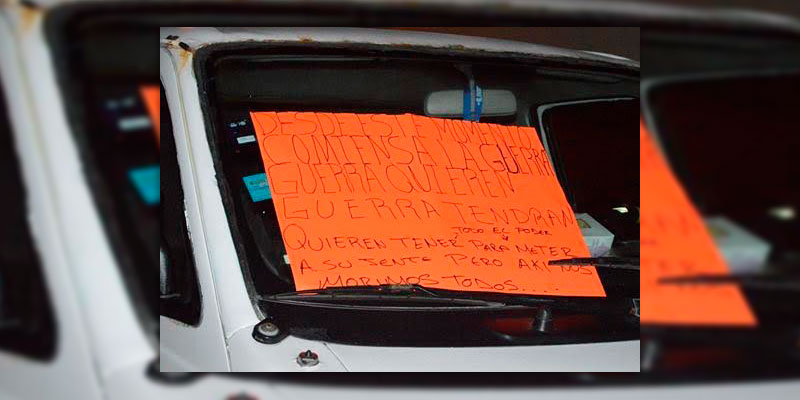 DESDE ESTE MOMENT
COMIENSA LA GUERRA
GUERRA QUIEREN
GUERRA TENDRAN
TODO EL PODER
QUIEREN TENER PARA METER
A SU JENTE PERO AKI NOS
MORIMOS TODOS.....